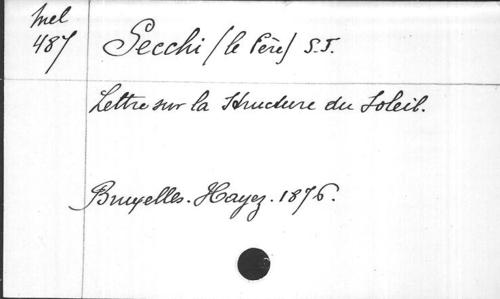 Mel
487
Secchi (le Père) S.J.
Lettre sur la Structure du Soleil.
Bruxelles. Hayez. 1876.